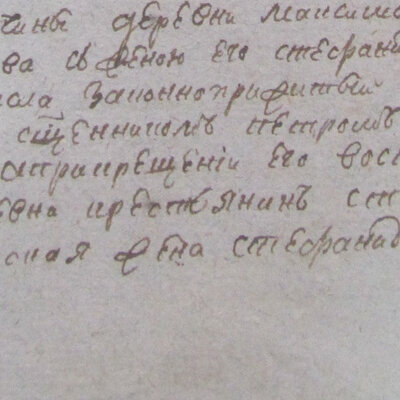 чины деревни максимо
ва сженою его стефани
села законноприжитый
сщенникомъ петромъ
априкрещеніи его восп
евна крестянинъ ст
ская жена стефанад